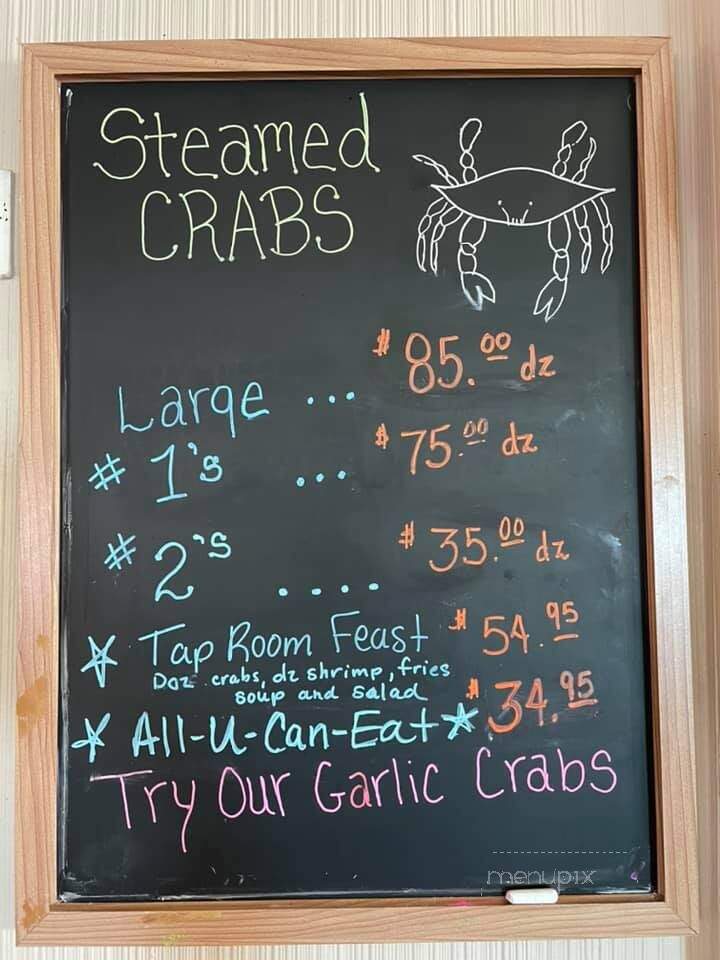 Steamed
CRABS
Large ... $85.00 dz
# 1's ... $75.00 dz
# 2's .... $35.00 dz
Tap Room Feast $54.95
Doz crabs, dz shrimp, fries
soup and salad
All-U-Can-Eat $34.95
Try Our Garlic Crabs
menupix